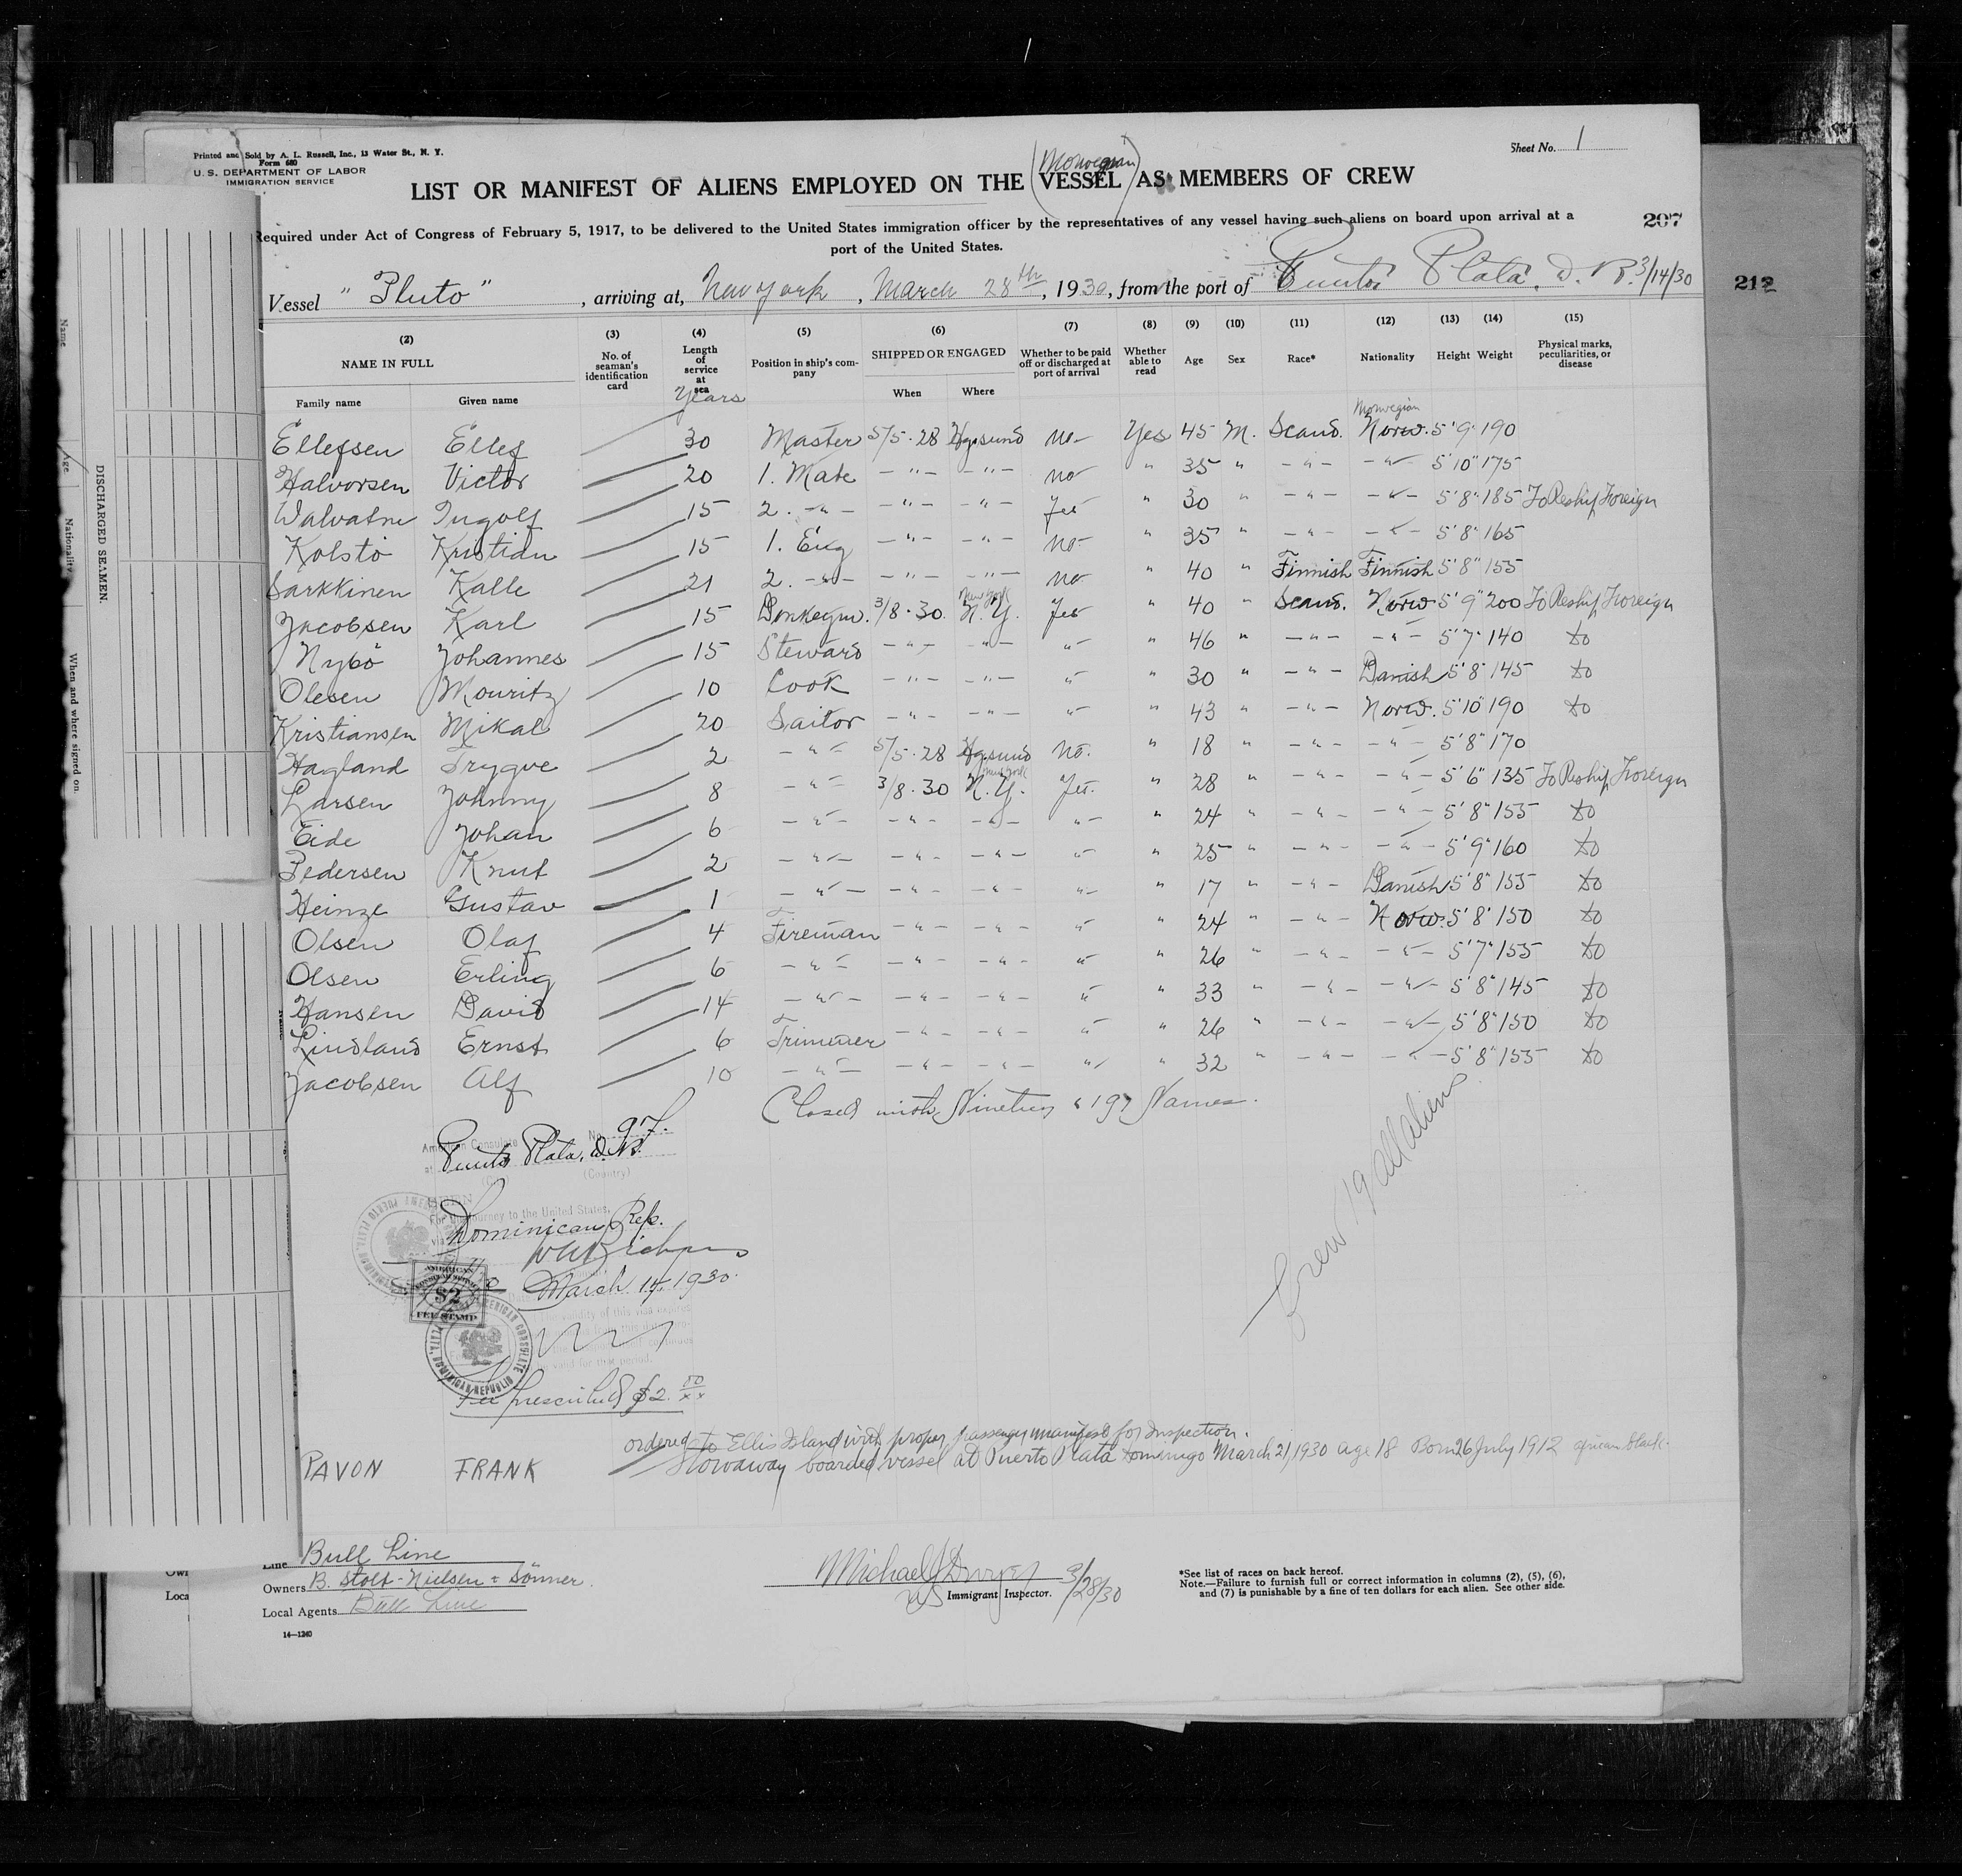 Printed and Sold by A. L. Russell, Inc., 13 Water St., N. Y.
Form 680
U. S. DEPARTMENT OF LABOR
IMMIGRATION SERVICE
Sheet No. 1
(Norwegian)
LIST OR MANIFEST OF ALIENS EMPLOYED ON THE VESSEL AS MEMBERS OF CREW
Required under Act of Congress of February 5, 1917, to be delivered to the United States immigration officer by the representatives of any vessel having such aliens on board upon arrival at a
port of the United States.
207
212
Vessel "Pluto", arriving at, New York, March 28th, 1930, from the port of Puerto Plata, D. R. 3/14/30
(2) (3) (4) (5) (6) (7) (8) (9) (10) (11) (12) (13) (14) (15)
NAME IN FULL No. of seaman's identification card Length of service at sea Position in ship's company SHIPPED OR ENGAGED Whether to be paid off or discharged at port of arrival Whether able to read Age Sex Race* Nationality Height Weight Physical marks, peculiarities, or disease
Family name Given name Years When Where
Norwegian
Ellefsen Ellef 30 Master 5/5-28 Hgsund no- Yes 45 M. Scand. Norw. 5'9" 190
Halvorsen Victor 20 1. Mate -"- -"- no " 35 " -"- -"- 5'10" 175
Walvatne Ingolf 15 2. -"- -"- -"- Yes " 30 " -"- -"- 5'8" 185 To Reship Foreign
Kolstö Kristian 15 1. Eng -"- -"- no- " 35 " -"- -"- 5'8" 165
Sarkkinen Kalle 21 2. -"- -"- -"- no " 40 " Finnish Finnish 5'8" 155
New York
Jacobsen Karl 15 Donkeym. 3/8-30. N.Y. Yes " 40 " Scand. Norw 5'9" 200 To Reship Foreign
Nybö Johannes 15 Steward -"- -"- " " 46 " -"- -"- 5'7" 140 do
Olesen Mouritz 10 Cook -"- -"- " " 30 " -"- Danish 5'8" 145 do
Kristiansen Mikal 20 Sailor -"- -"- " " 43 " -"- Norw. 5'10" 190 do
Hagland Trygve 2 -"- 5/5-28 Hgsund no. " 18 " -"- -"- 5'8" 170
New York
Larsen Johnny 8 -"- 3/8-30 N.Y. Yes. " 28 " -"- -"- 5'6" 135 To Reship Foreign
Eide Johan 6 -"- -"- -"- " " 24 " -"- -"- 5'8" 155 do
Pedersen Knut 2 -"- -"- -"- " " 25 " -"- -"- 5'9" 160 do
Heinze Gustav 1 -"- -"- -"- " " 17 " -"- Danish 5'8" 155 do
Olsen Olaf 4 Fireman -"- -"- " " 24 " Norw. 5'8" 150 do
Olsen Erling 6 -"- -"- -"- " " 26 " -"- -"- 5'7" 155 do
Hansen David 14 -"- -"- -"- " " 33 " -"- -"- 5'8" 145 do
Lindland Ernst 6 Trimmer -"- -"- " " 26 " -"- -"- 5'8" 150 do
Jacobsen Alf 10 -"- -"- -"- " " 32 " -"- -"- 5'8" 155 do
Closed with Nineteen (19) Names.
American Consulate No. 97.
at Puerto Plata, D.R.
(Country)
For the journey to the United States,
via Dominican Rep.
March 14, 1930.
AMERICAN
$2
FEE STAMP
AMERICAN CONSULATE
PUERTO PLATA, DOMINICAN REPUBLIC
Fee prescribed $2.00
Crew 19 all aliens
ordered to Ellis Island with proper passenger manifest for Inspection.
PAVON FRANK Stowaway boarded vessel at Puerto Plata Domingo March 21, 1930 age 18 Born 26 July 1912 african black.
Line Bull Line
Owners B. Stolt-Nielsen & Sönner.
Local Agents Bull Line
14—1240
Michael J Dwyer 3/28/30
US Immigrant Inspector.
*See list of races on back hereof.
Note.—Failure to furnish full or correct information in columns (2), (5), (6),
and (7) is punishable by a fine of ten dollars for each alien. See other side.
DISCHARGED SEAMEN.
Name
Age
Nationality
When and where signed on.
Owners
Loca